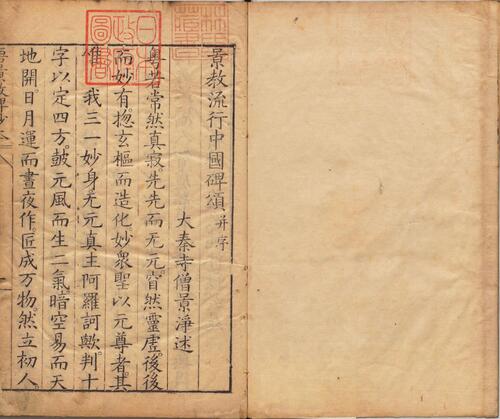 景教流行中國碑頌并序
大秦寺僧景淨述
粵若常然真寂先先而无元窅然靈虛後後
而妙有惚玄樞而造化妙衆聖以元尊者其
惟我三一妙身无元真主阿羅訶歟判十
字以定四方鼓元風而生二氣暗空易而天
地開日月運而晝夜作匠成万物然立初人
日本政圖書